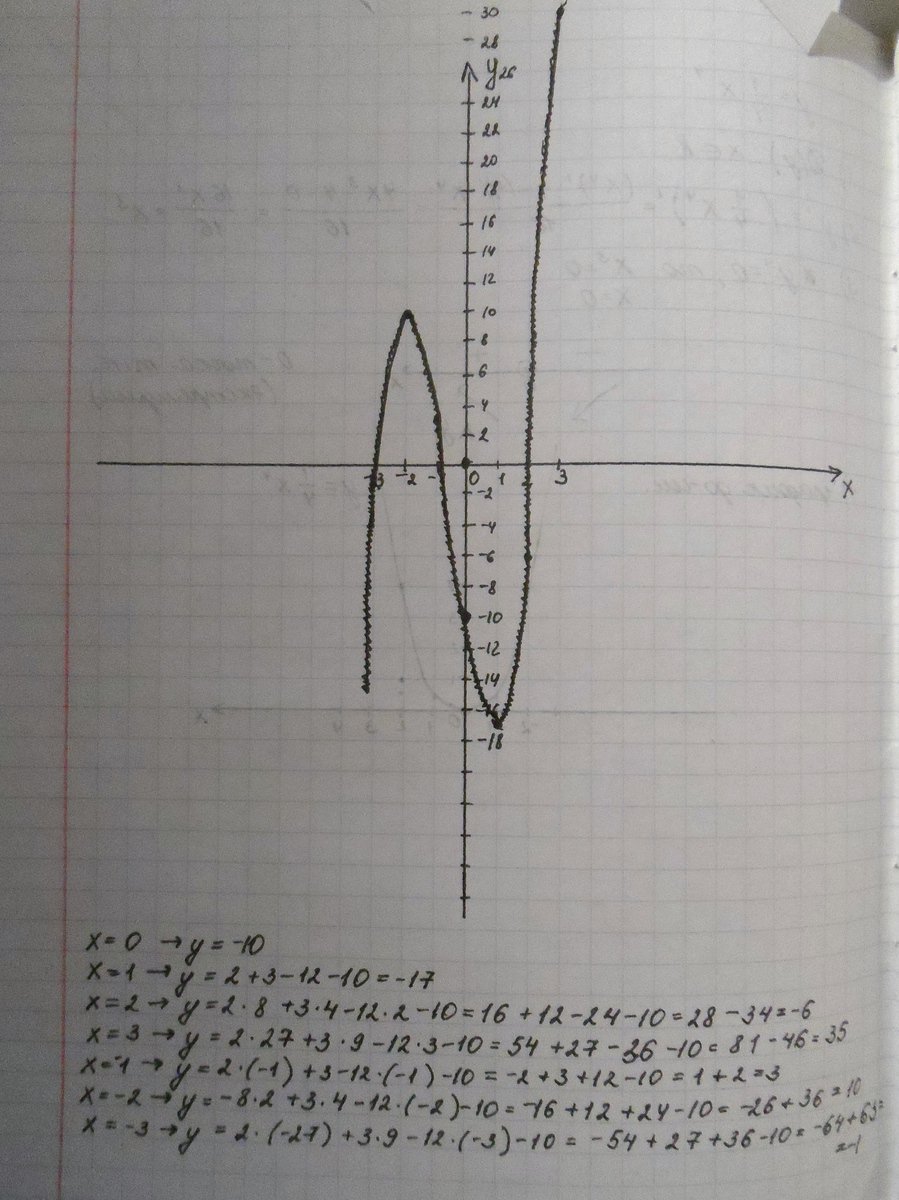 30
28
y 26
24
22
20
18
16
14
12
10
8
6
4
2
-3 -2 -1 0 1 2 3 x
-2
-4
-6
-8
-10
-12
-14
-16
-18
x = 0 → y = -10
x = 1 → y = 2 + 3 - 12 - 10 = -17
x = 2 → y = 2 · 8 + 3 · 4 - 12 · 2 - 10 = 16 + 12 - 24 - 10 = 28 - 34 = -6
x = 3 → y = 2 · 27 + 3 · 9 - 12 · 3 - 10 = 54 + 27 - 36 - 10 = 81 - 46 = 35
x = -1 → y = 2 · (-1) + 3 - 12 · (-1) - 10 = -2 + 3 + 12 - 10 = 1 + 2 = 3
x = -2 → y = -8 · 2 + 3 · 4 - 12 · (-2) - 10 = -16 + 12 + 24 - 10 = -26 + 36 = 10
x = -3 → y = 2 · (-27) + 3 · 9 - 12 · (-3) - 10 = -54 + 27 + 36 - 10 = -64 + 63 =
= -1